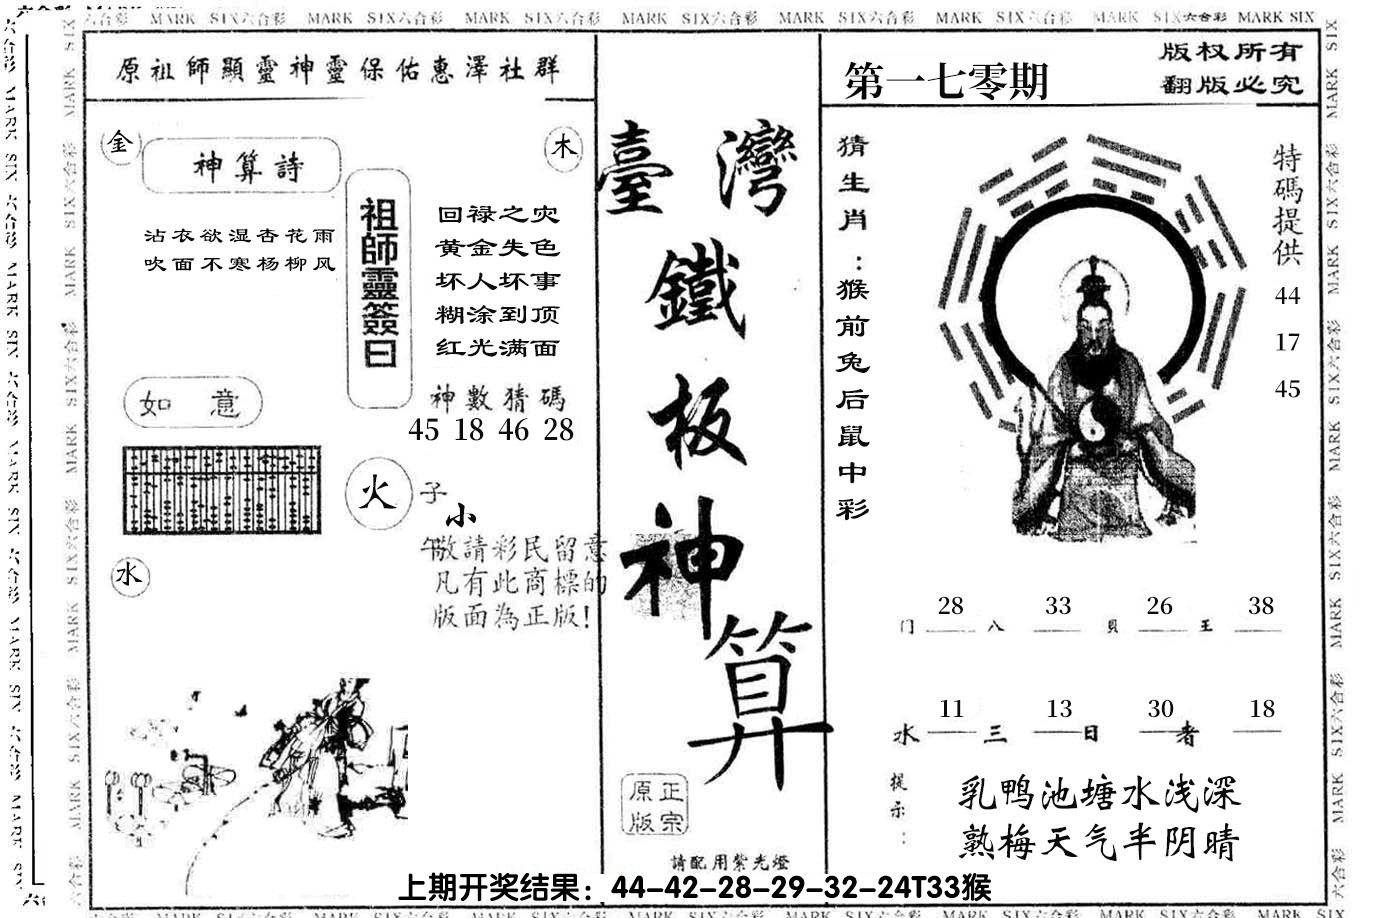 MARK SIX六合彩 MARK SIX六合彩 MARK SIX六合彩 MARK SIX六合彩 MARK SIX六合彩 MARK SIX六合彩 MARK SIX六合彩 MARK SIX
原祖師顯靈神靈保佑惠澤社群
金
木
神算詩
沾衣欲湿杏花雨
吹面不寒杨柳风
祖師靈簽曰
回禄之灾
黄金失色
坏人坏事
糊涂到顶
红光满面
如意
神數猜碼
45 18 46 28
火
子
小
午
敬請彩民留意
凡有此商標的
版面為正版!
水
臺灣
鐵
板
神
算
正宗
原版
請配用紫光燈
第一七零期
版权所有
翻版必究
猜生肖:猴前兔后鼠中彩
特碼提供
44
17
45
28 33 26 38
门 八 貝 王
11 13 30 18
水 三 日 者
提示:
乳鸭池塘水浅深
熟梅天气半阴晴
上期开奖结果：44-42-28-29-32-24T33猴